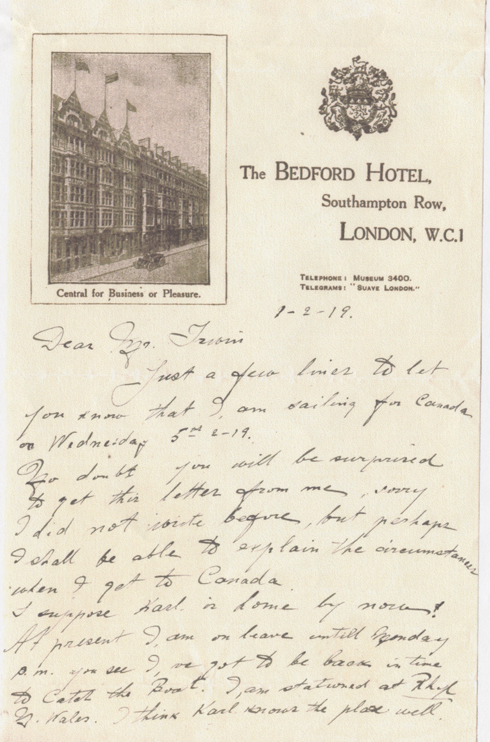 The BEDFORD HOTEL,
Southampton Row,
LONDON, W.C.1
TELEPHONE: MUSEUM 3400.
TELEGRAMS: "SUAVE LONDON."
Central for Business or Pleasure.
1-2-19.
Dear Mr. Irwin
Just a few lines to let
you know that I, am sailing for Canada
on Wednesday 5th 2-19.
No doubt you will be surprised
to get this letter from me, sorry
I did not write before, but perhaps
I shall be able to explain the circumstances
when I get to Canada
I suppose Karl is home by now!
At present I, am on leave untill Monday
p.m. you see I, ve got to be back in time
to Catch the Boat. I, am stationed at Rhyl
N. Wales. I think Karl knows the place well.